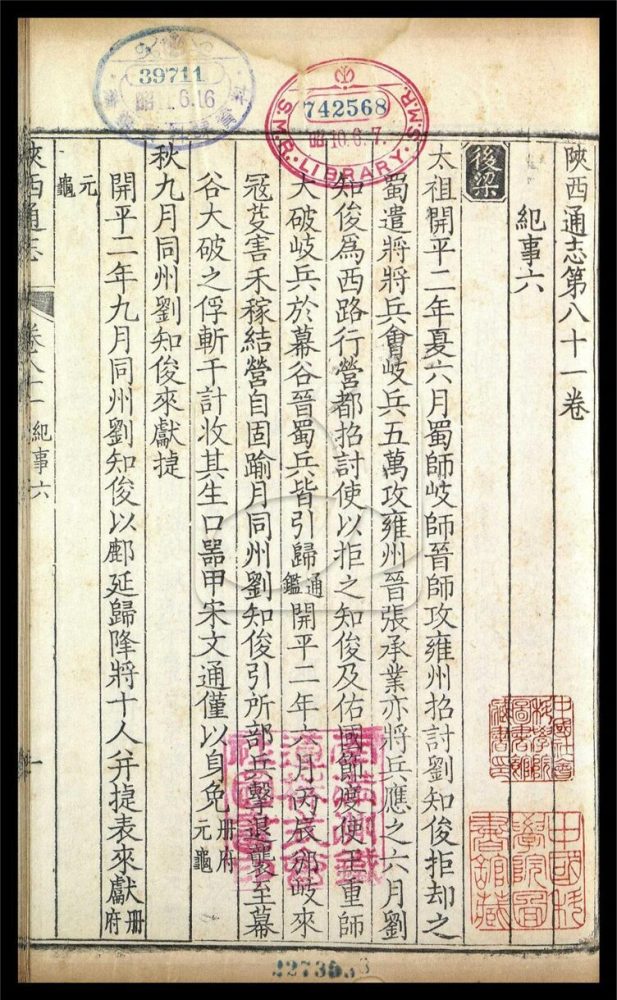 陝西通志第八十一卷
紀事六
後梁
太祖開平二年夏六月蜀師岐師晉師攻雍州招討劉知俊拒却之
蜀遣將將兵會岐兵五萬攻雍州晉張承業亦將兵應之六月劉
知俊爲西路行營都招討使以拒之知俊及佑國節度使王重師
大破岐兵於幕谷晉蜀兵皆引歸通鑑開平二年六月丙辰邠岐來
冦芟害禾稼結營自固踰月同州劉知俊引所部兵擊退襲至幕
谷大破之俘斬千計收其生口器甲宋文通僅以身免册府元龜
秋九月同州劉知俊來獻捷
開平二年九月同州劉知俊以鄜延歸降將十人并捷表來獻册府
元龜
陝西通志 卷八十一 紀事六 一
39711
6.16
742568
10.6.7.
S.M.R. LIBRARY. S.M.R.
中國社會科學院圖書館藏書印
中國科學院圖書館藏